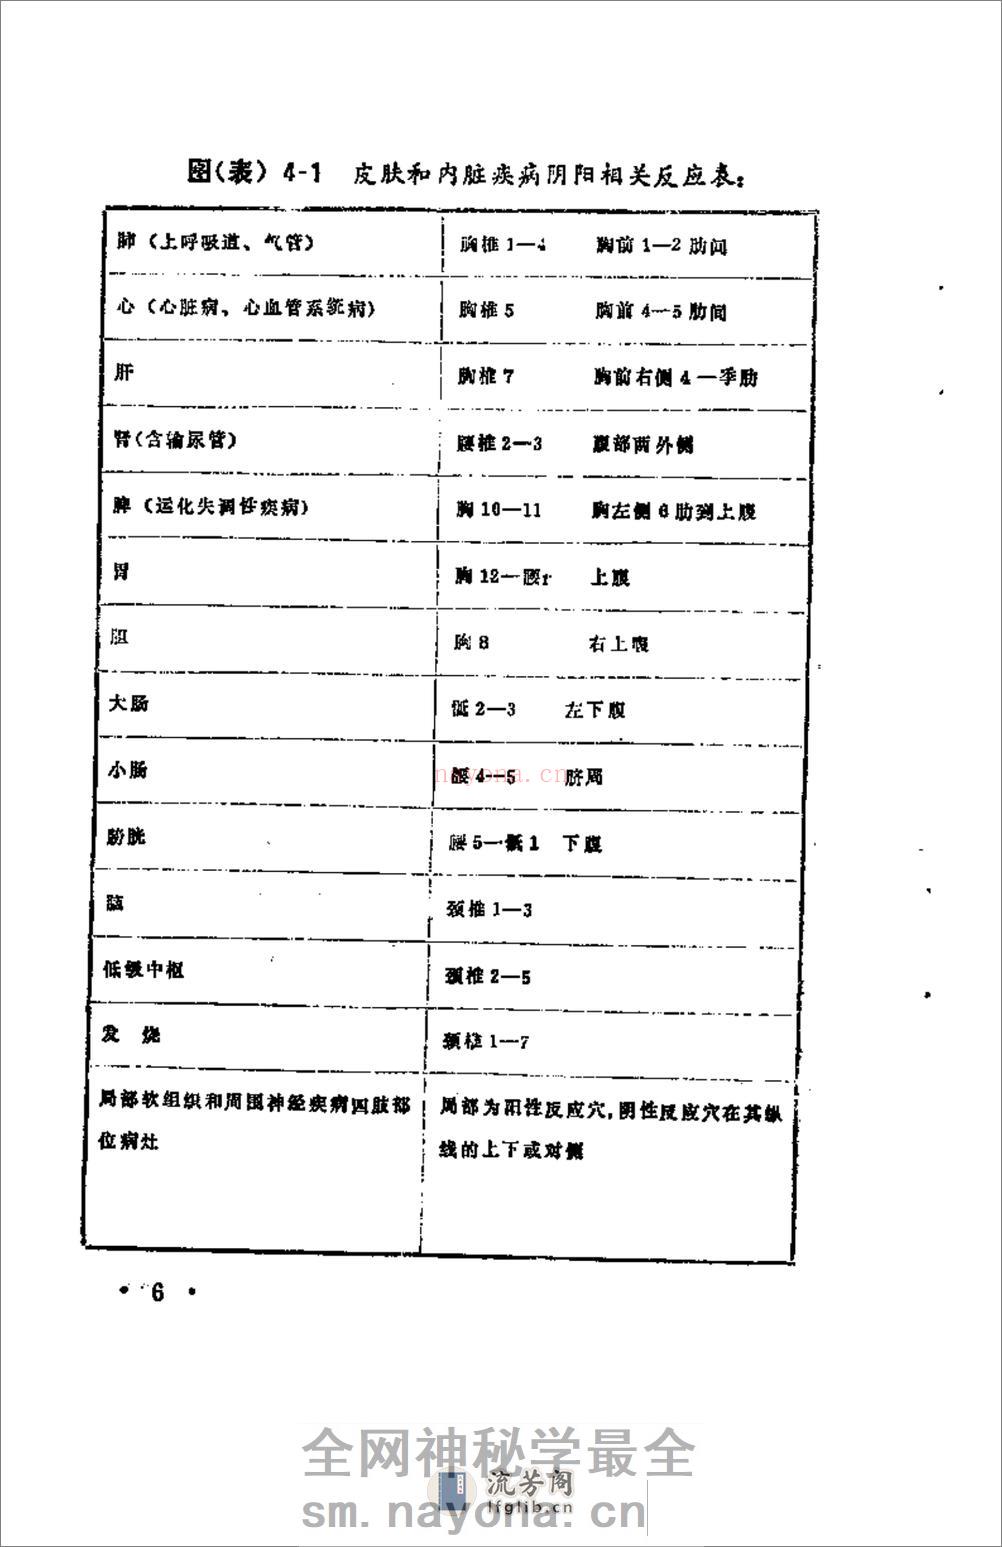 图(表) 4-1 皮肤和内脏疾病阴阳相关反应表:
肺(上呼吸道、气管) 胸椎1—4 胸前1—2肋间
心(心脏病、心血管系统病) 胸椎5 胸前4—5肋间
肝 胸椎7 胸前右侧4—季肋
肾(含输尿管) 腰椎2—3 腹部两外侧
脾(运化失调性疾病) 胸10—11 胸左侧6肋到上腹
胃 胸12—腰 上腹
胆 胸8 右上腹
大肠 骶2—3 左下腹
小肠 腰4—5 脐周
膀胱 腰5—骶1 下腹
脑 颈椎1—3
低级中枢 颈椎2—5
发 烧 颈椎1—7
局部软组织和周围神经疾病四肢部 局部为阳性反应穴,阴性反应穴在其纵
位病灶 线的上下或对侧
• 6 •
nayona.cn
全网神秘学最全
流芳阁
lfglib.cn
sm.nayona.cn